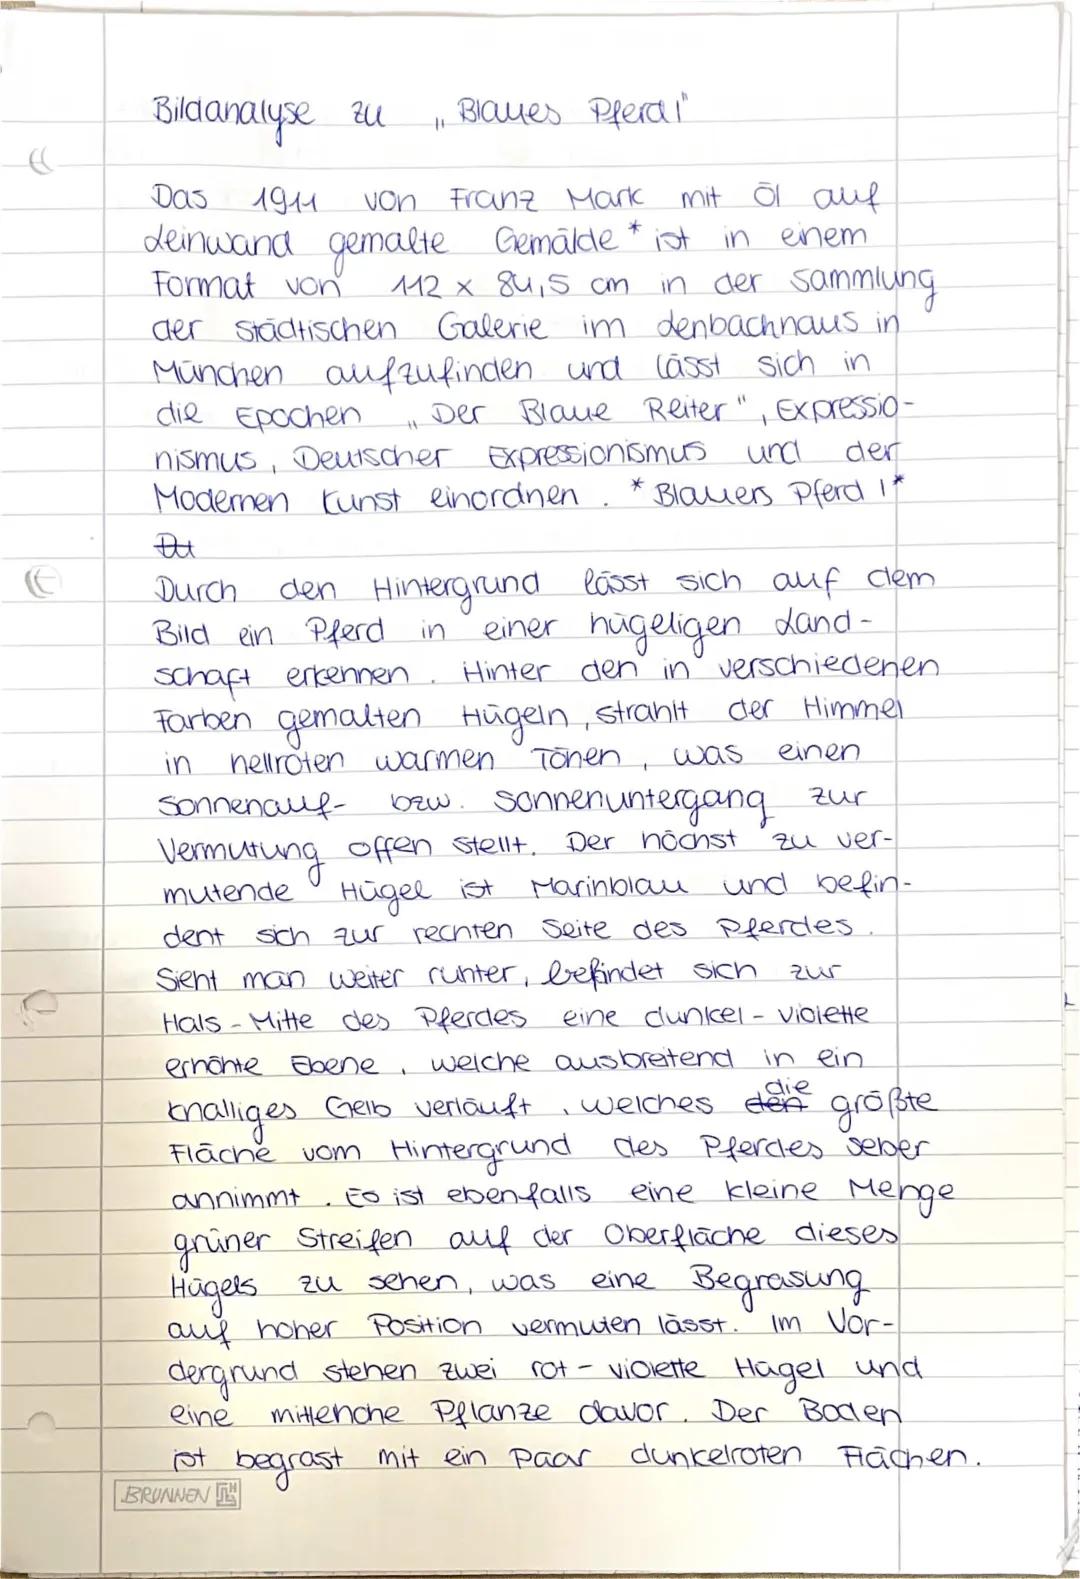 Bildanalyse zu „Blaues Pferd I"
Das 1911 von Franz Mark mit Öl auf
Leinwand gemalte Gemälde * ist in einem
Format von 112 x 84,5 cm in der Sammlung
der Städtischen Galerie im Lenbachhaus in
München aufzufinden und lässt sich in
die Epochen „Der Blaue Reiter", Expressio-
nismus, Deutscher Expressionismus und der
Modernen Kunst einordnen. * Blauers Pferd I*
Durch den Hintergrund lässt sich auf dem
Bild ein Pferd in einer hügeligen Land-
schaft erkennen. Hinter den in verschiedenen
Farben gemalten Hügeln, strahlt der Himmel
in hellroten warmen Tönen, was einen
Sonnenauf- bzw. Sonnenuntergang zur
Vermutung offen stellt. Der höchst zu ver-
mutende Hügel ist Marinblau und befin-
dent sich zur rechten Seite des Pferdes.
Sieht man weiter runter, befindet sich zur
Hals-Mitte des Pferdes eine dunkel-violette
erhöhte Ebene, welche ausbreitend in ein
knalliges Gelb verläuft, welches den die größte
Fläche vom Hintergrund des Pferdes selber
annimmt. Es ist ebenfalls eine kleine Menge
grüner Streifen auf der Oberfläche dieses
Hügels zu sehen, was eine Begrasung
auf hoher Position vermuten lässt. Im Vor-
dergrund stehen zwei rot-violette Hügel und
eine mittelhohe Pflanze davor. Der Boden
ist begrast mit ein paar dunkelroten Flächen.
BRUNNEN